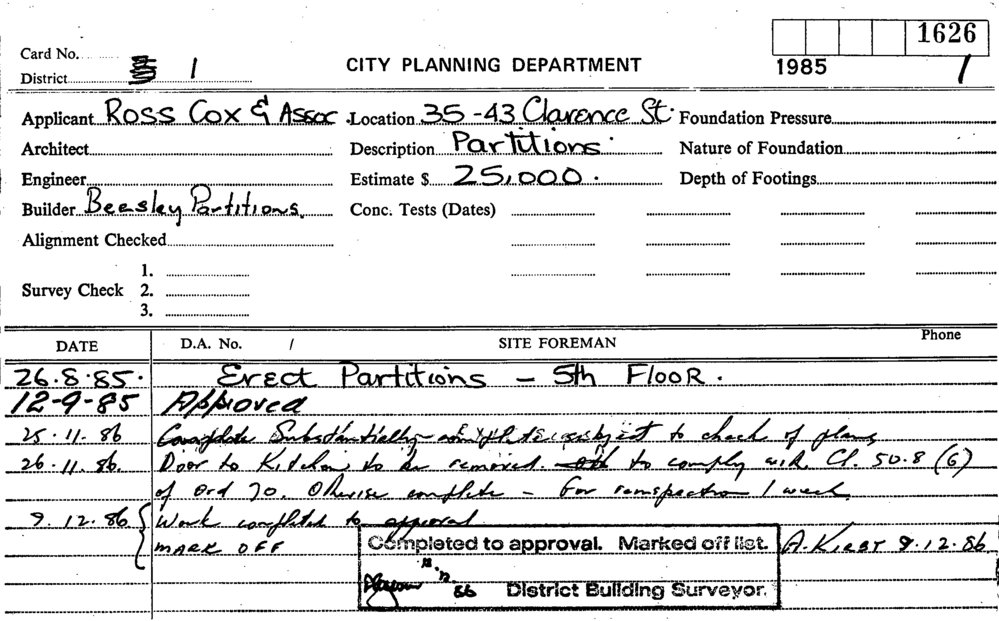 1626
Card No.
District 1
CITY PLANNING DEPARTMENT
1985 1
Applicant Ross Cox & Assoc Location 35-43 Clarence St. Foundation Pressure
Architect Description Partitions. Nature of Foundation
Engineer Estimate $ 25,000. Depth of Footings
Builder Beesley Partitions. Conc. Tests (Dates)
Alignment Checked
1.
Survey Check 2.
3.
DATE D.A. No. / SITE FOREMAN Phone
26.8.85. Erect Partitions - 5th Floor.
12-9-85 Approved
25.11.86 Substantially subject to check of plans
26.11.86. Door to Kitchen to be removed. to comply with Cl. 50.8 (6)
of Ord 70. Otherwise complete - For reinspection 1 week
9.12.86 Work completed to approval
MARK OFF
Completed to approval. Marked off list. A. KIRBY 9.12.86
12.
86 District Building Surveyor.